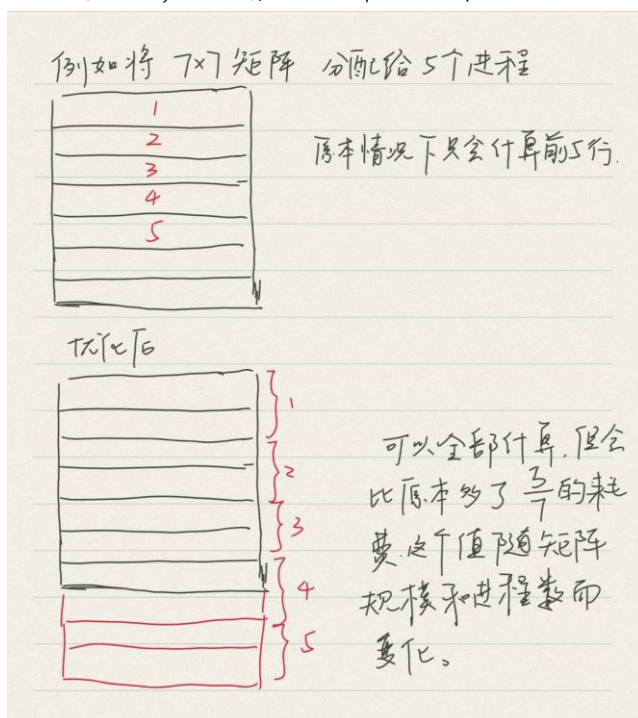 例如将 7×7 矩阵 分配给 5个进程
1
2
3
4
5
原本情况下只会计算前5行.
优化后
1
2
3
4
5
可以全部计算,但会
比原本多了 3/7 的耗
费.这个值随矩阵
规模和进程数而
变化。